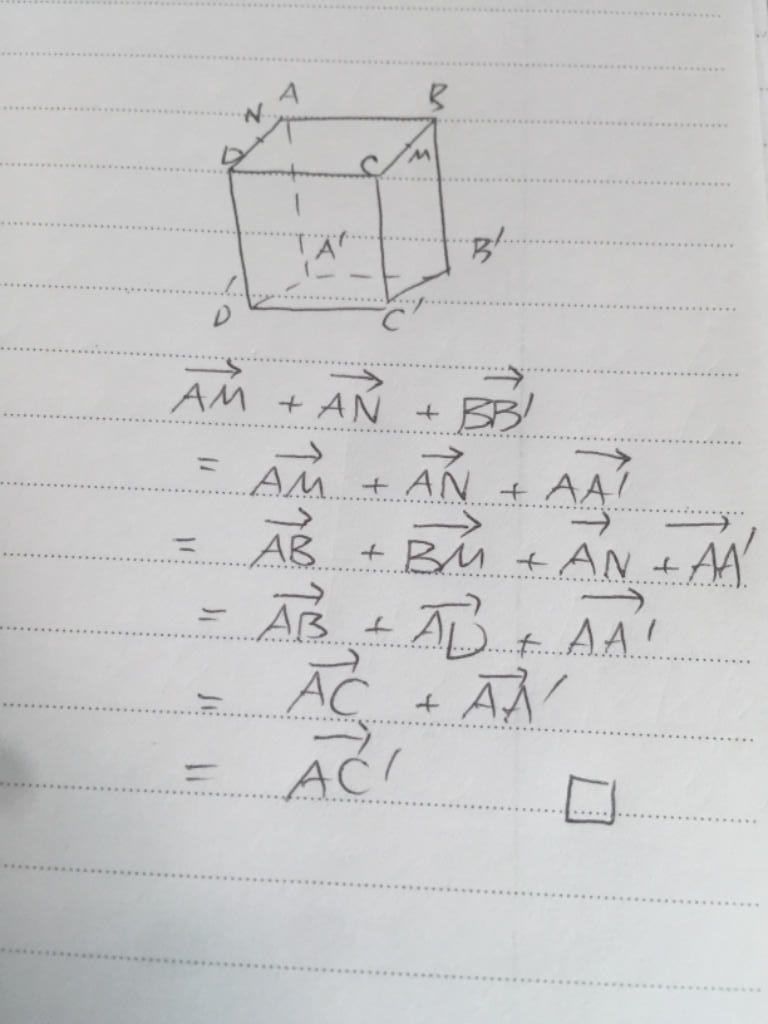 A B
N
D C M
A' B'
D' C'
$\overrightarrow{AM} + \overrightarrow{AN} + \overrightarrow{BB'}$
$= \overrightarrow{AM} + \overrightarrow{AN} + \overrightarrow{AA'}$
$= \overrightarrow{AB} + \overrightarrow{BM} + \overrightarrow{AN} + \overrightarrow{AA'}$
$= \overrightarrow{AB} + \overrightarrow{AD} + \overrightarrow{AA'}$
$= \overrightarrow{AC} + \overrightarrow{AA'}$
$= \overrightarrow{AC'}$ □